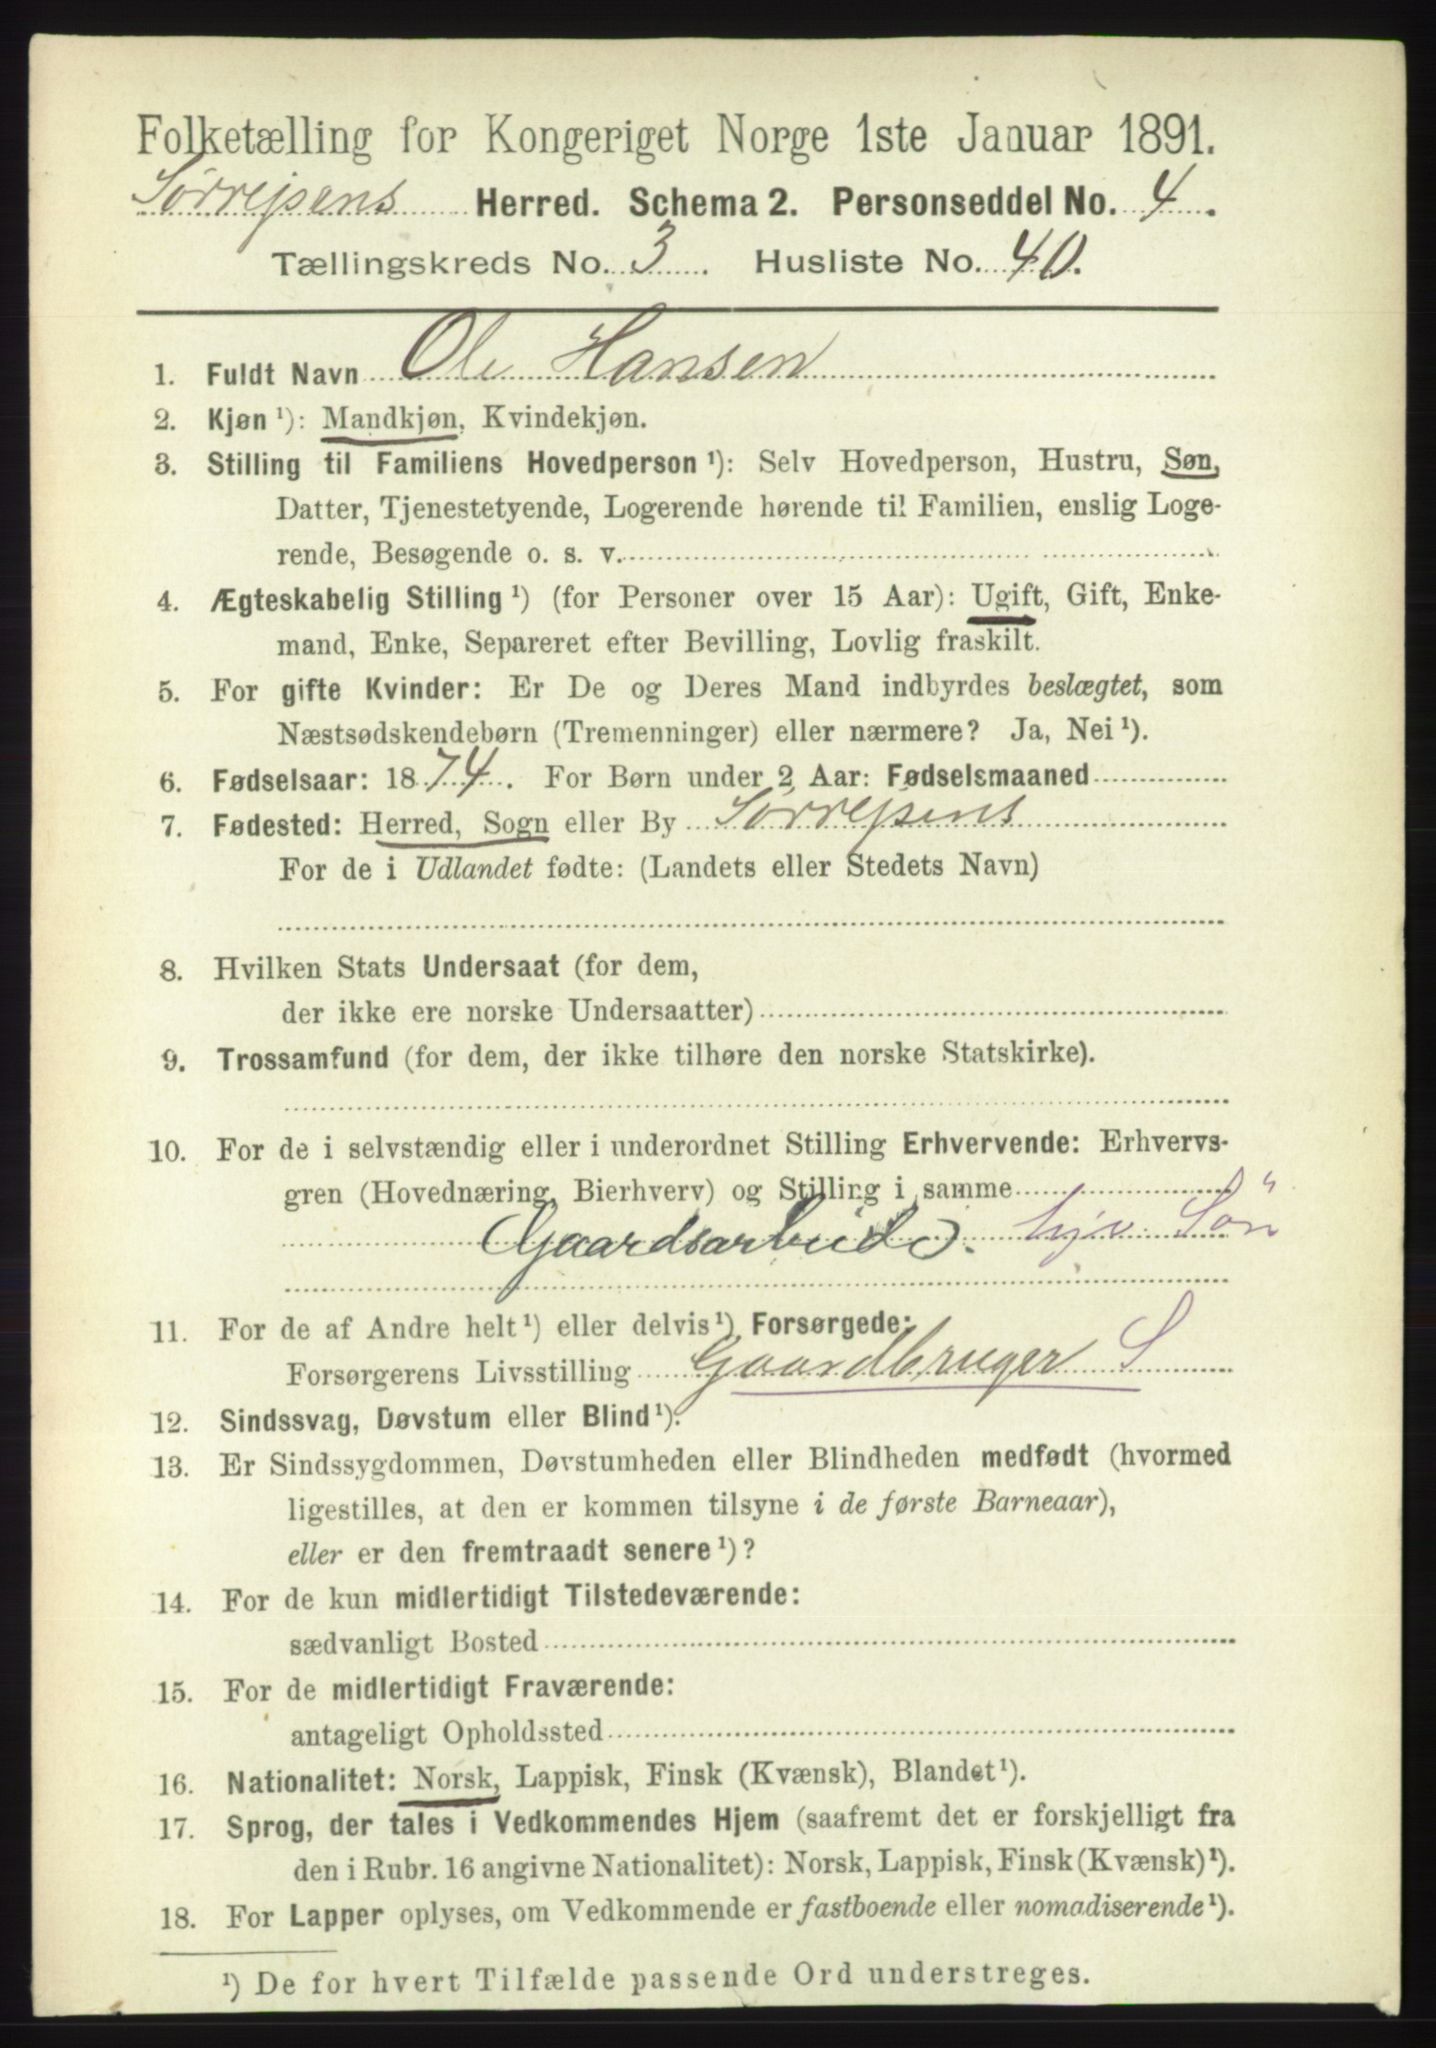 Folketælling for Kongeriget Norge 1ste Januar 1891.
Sørrejsens Herred. Schema 2. Personseddel No. 4.
Tællingskreds No. 3. Husliste No. 40.
1. Fuldt Navn Ole Hansen
2. Kjøn ¹): Mandkjøn, Kvindekjøn.
3. Stilling til Familiens Hovedperson ¹): Selv Hovedperson, Hustru, Søn,
Datter, Tjenestetyende, Logerende hørende til Familien, enslig Loge-
rende, Besøgende o. s. v.
4. Ægteskabelig Stilling ¹) (for Personer over 15 Aar): Ugift, Gift, Enke-
mand, Enke, Separeret efter Bevilling, Lovlig fraskilt.
5. For gifte Kvinder: Er De og Deres Mand indbyrdes beslægtet, som
Næstsødskendebørn (Tremenninger) eller nærmere? Ja, Nei ¹).
6. Fødselsaar: 1874. For Børn under 2 Aar: Fødselsmaaned
7. Fødested: Herred, Sogn eller By Sørrejsens
For de i Udlandet fødte: (Landets eller Stedets Navn)
8. Hvilken Stats Undersaat (for dem,
der ikke ere norske Undersaatter)
9. Trossamfund (for dem, der ikke tilhøre den norske Statskirke).
10. For de i selvstændig eller i underordnet Stilling Erhvervende: Erhvervs-
gren (Hovednæring, Bierhverv) og Stilling i samme
Gaardsarbeide. hjv. Søn
11. For de af Andre helt ¹) eller delvis ¹) Forsørgede:
Forsørgerens Livsstilling Gaardbruger S
12. Sindssvag, Døvstum eller Blind ¹).
13. Er Sindssygdommen, Døvstumheden eller Blindheden medfødt (hvormed
ligestilles, at den er kommen tilsyne i de første Barneaar),
eller er den fremtraadt senere ¹)?
14. For de kun midlertidigt Tilstedeværende:
sædvanligt Bosted
15. For de midlertidigt Fraværende:
antageligt Opholdssted
16. Nationalitet: Norsk, Lappisk, Finsk (Kvænsk), Blandet ¹).
17. Sprog, der tales i Vedkommendes Hjem (saafremt det er forskjelligt fra
den i Rubr. 16 angivne Nationalitet): Norsk, Lappisk, Finsk (Kvænsk) ¹).
18. For Lapper oplyses, om Vedkommende er fastboende eller nomadiserende ¹).
¹) De for hvert Tilfælde passende Ord understreges.